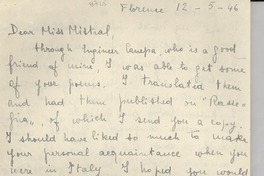 Florence 12-5-46
Dear Miss Mistral,
through Engineer Canepa, who is a good
friend of mine, I was able to get some
of your poems. I translated them
and had them published on "Rasse-
gna", of which I send you a copy.
I should have liked so much to make
your personal acquaintance when you
were in Italy. I hoped you would